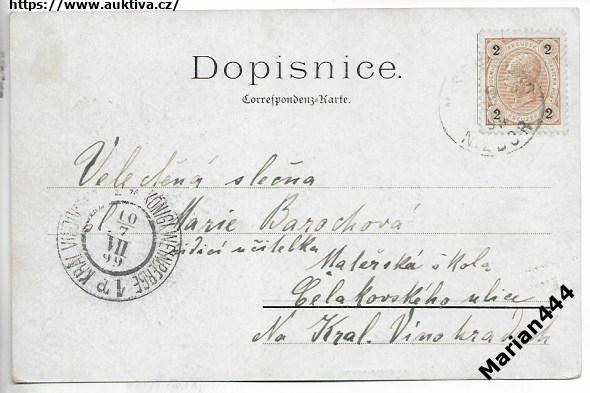 https://www.auktiva.cz/
Dopisnice.
Correspondenz-Karte.
2 2
2 2
Velectěná slečna
Marie Barochová
řídící učitelka
Mateřská škola
Čelakovského ulice
Na Král. Vinohradech
10
7
VII
99
Marian444